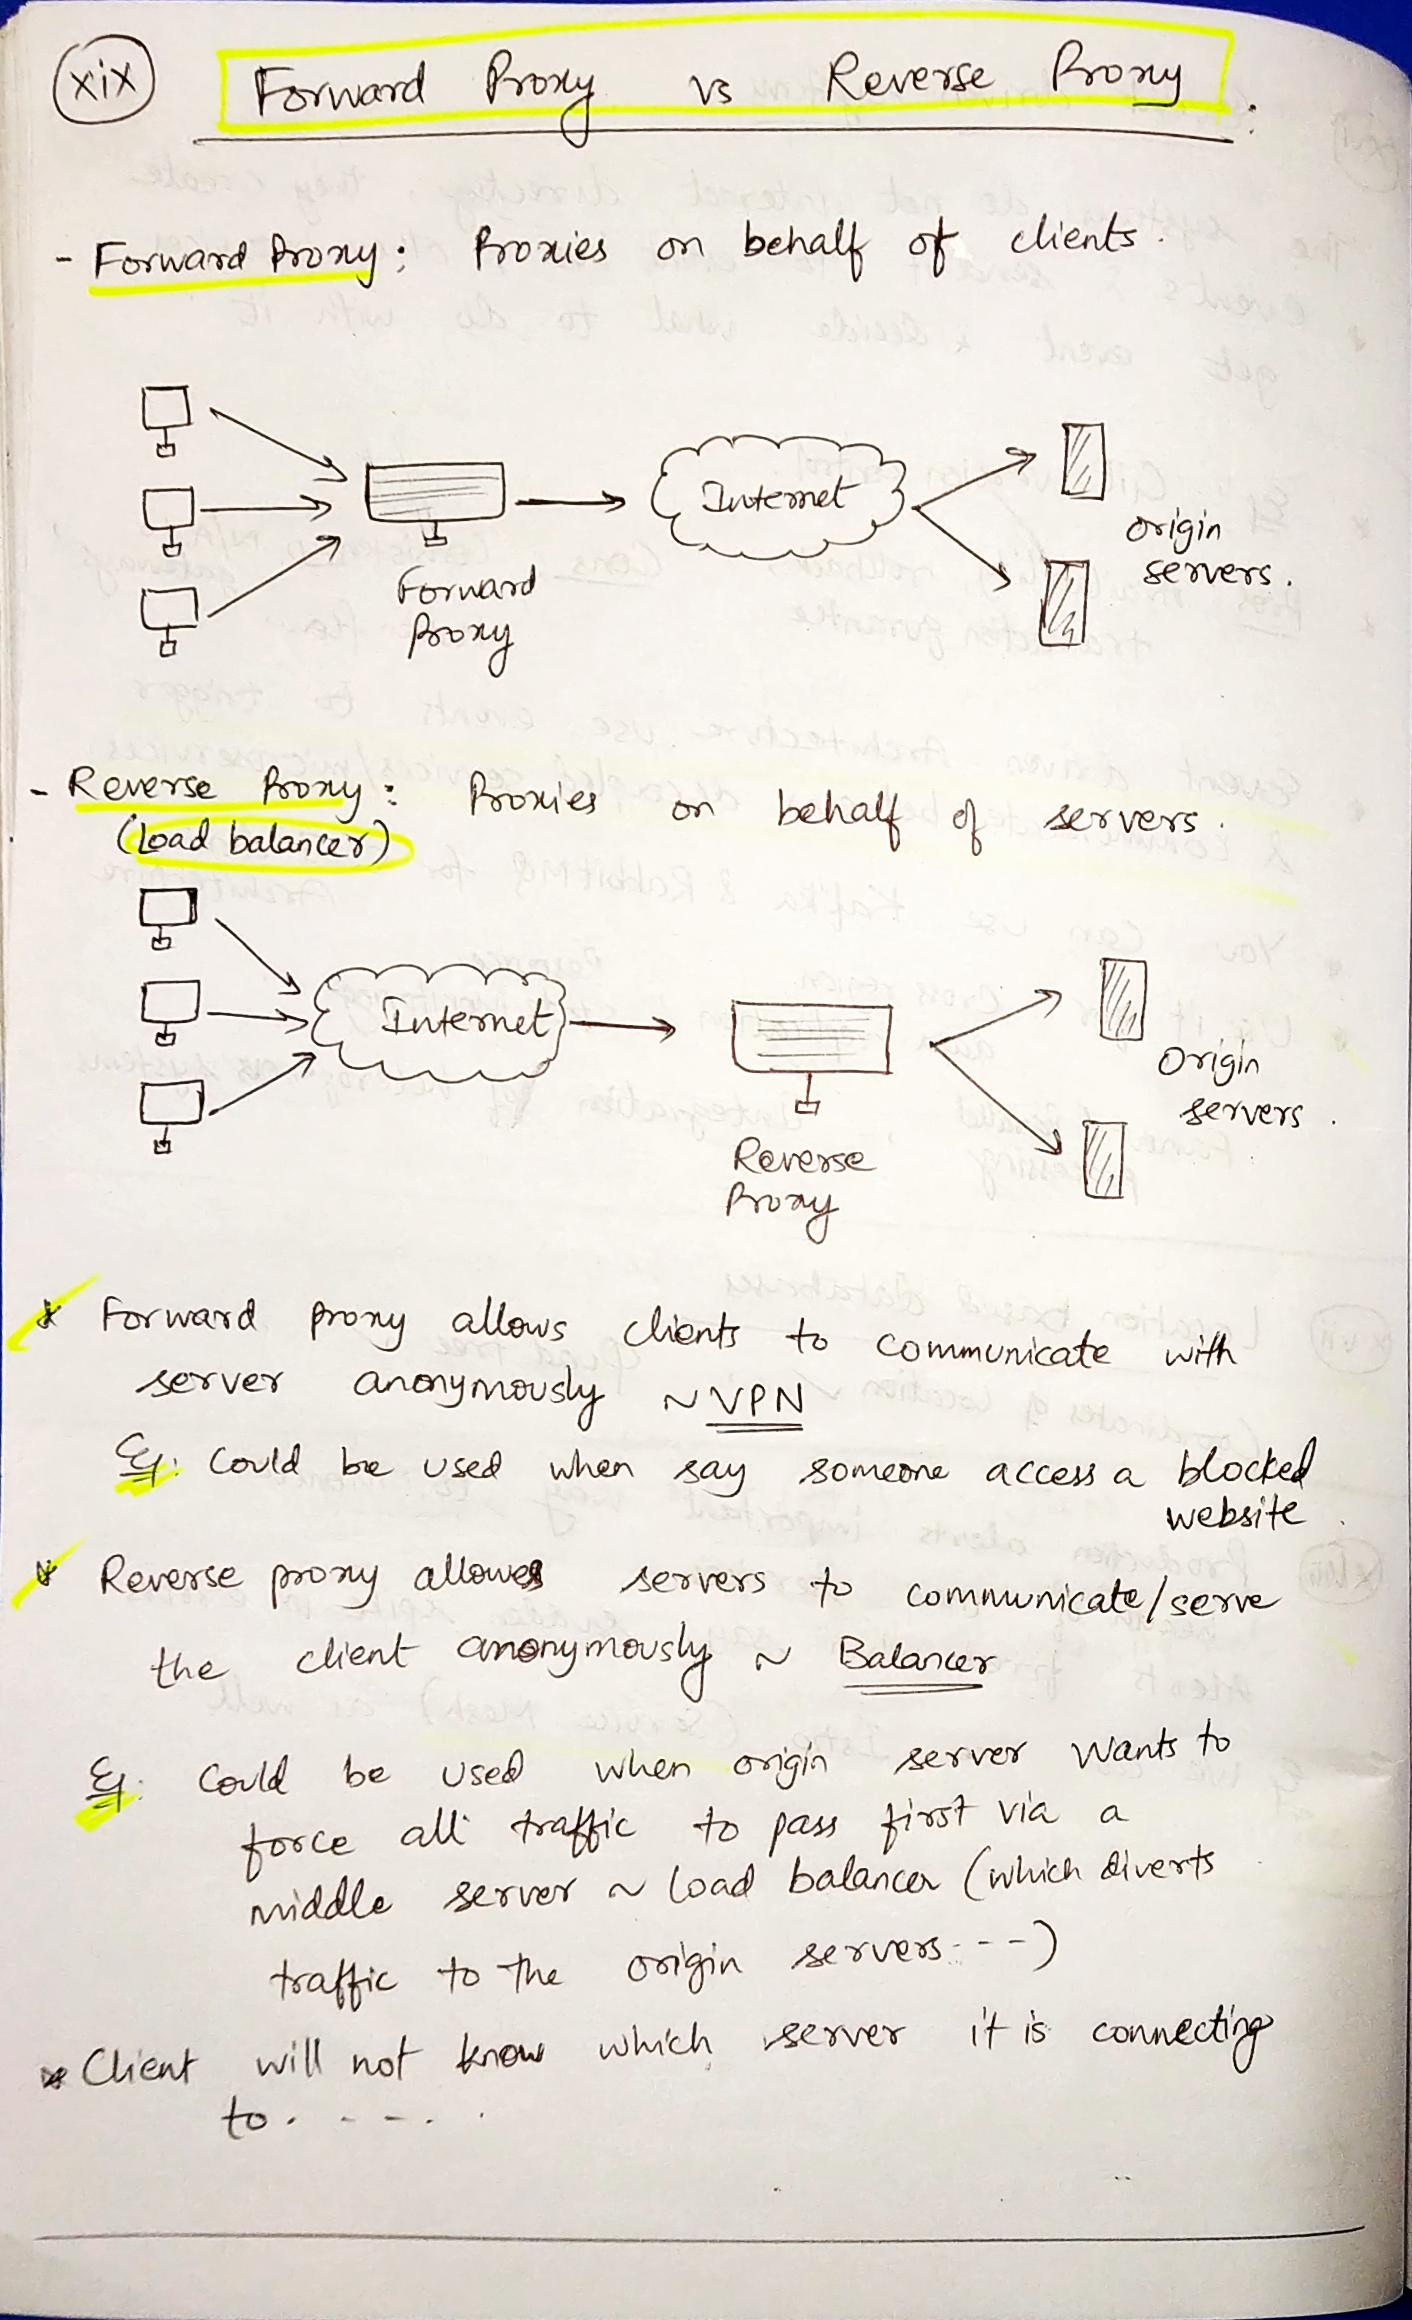 xix Forward Proxy vs Reverse Proxy :
- Forward Proxy : Proxies on behalf of clients.
Internet
origin
servers.
Forward
Proxy
- Reverse Proxy : Proxies on behalf of servers.
(Load balancer)
Internet
Origin
servers.
Reverse
Proxy
* Forward proxy allows clients to communicate with
server anonymously ~ VPN
Eg. Could be used when say someone access a blocked
website.
* Reverse proxy allowes servers to communicate/serve
the client anonymously ~ Balancer
Eg. Could be used when origin server wants to
force all traffic to pass first via a
middle server ~ load balancer (which diverts
traffic to the origin servers.---)
* Client will not know which server it is connecting
to. - - - .